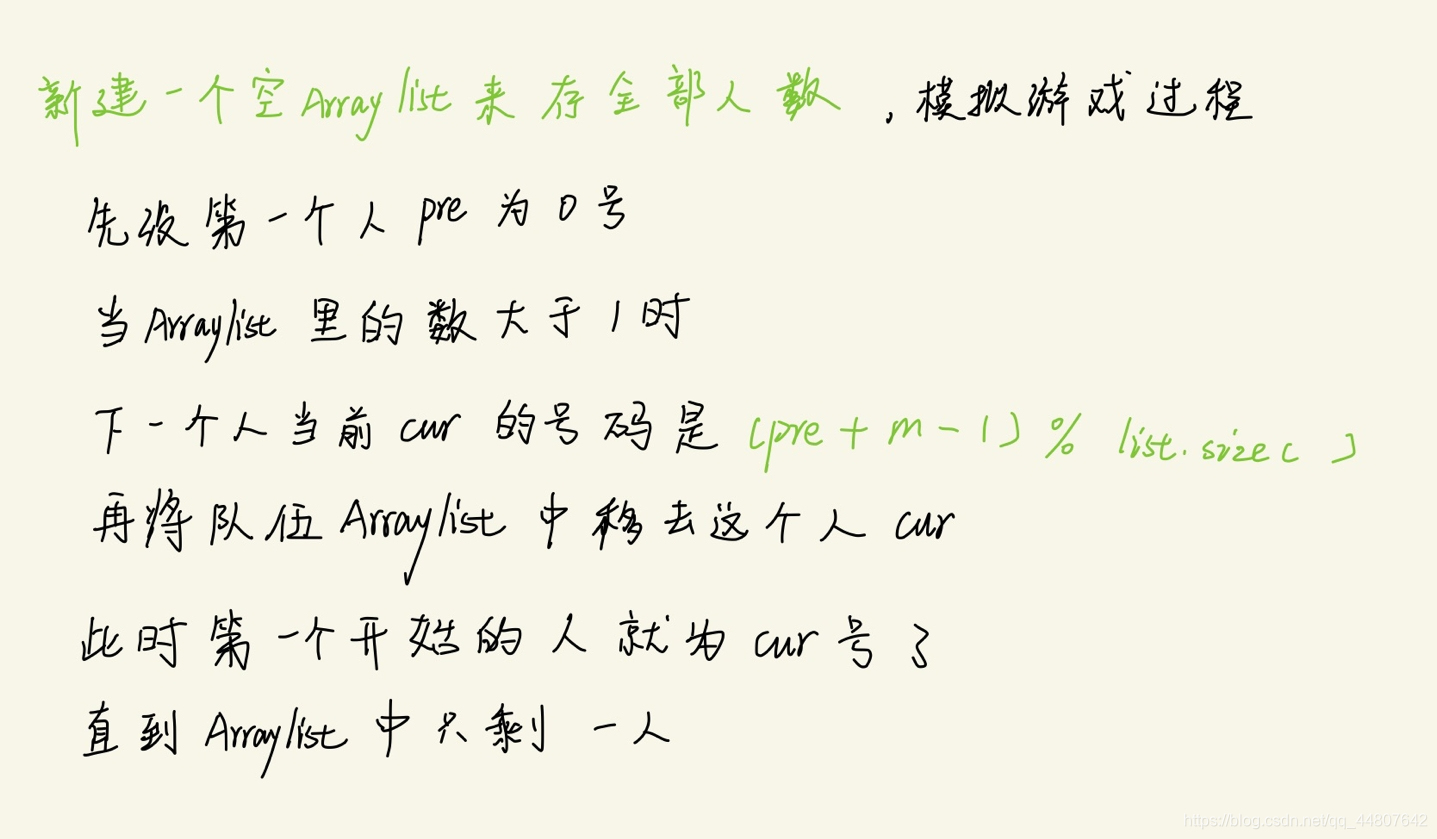 新建一个空Arraylist来存全部人数，模拟游戏过程
先设第一个人pre为0号
当Arraylist里的数大于1时
下一个人当前cur的号码是(pre+m-1)% list.size( )
再将队伍Arraylist中移去这个人cur
此时第一个开始的人就为cur号了
直到Arraylist中只剩一人
https://blog.csdn.net/qq_44807642